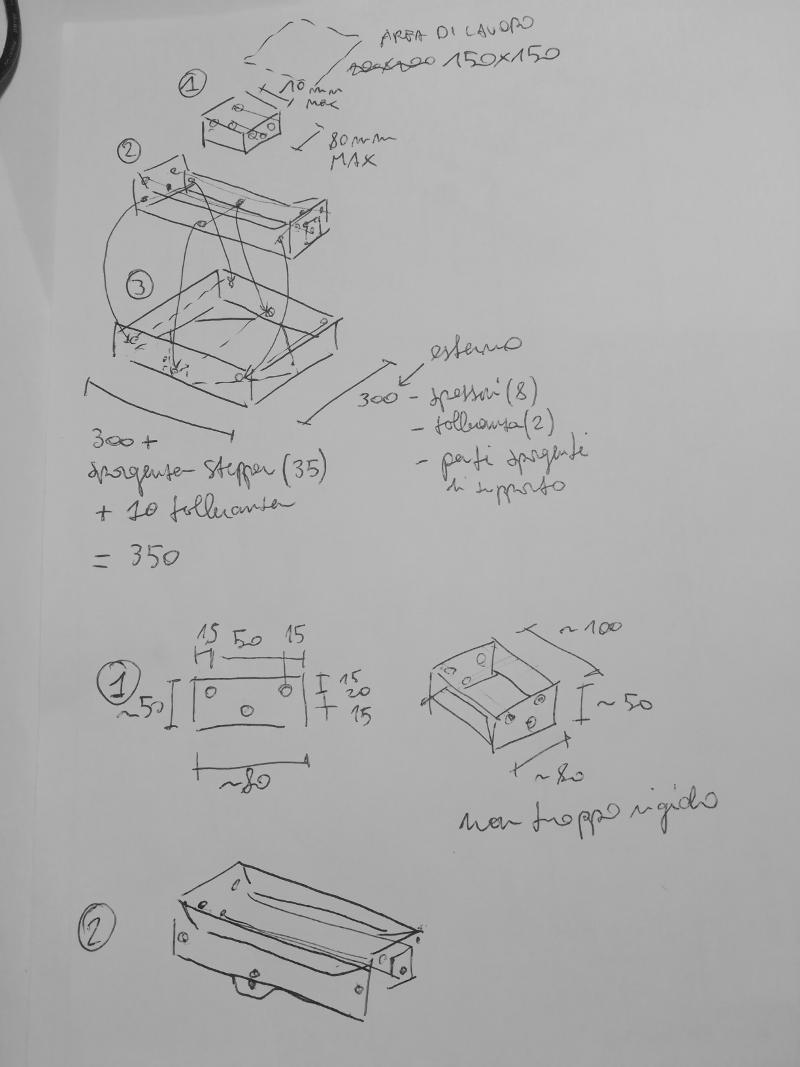 AREA DI LAVORO
150x150
1
10mm
max
80mm
MAX
2
3
esterno
300 - spessori (8)
- tolleranza (2)
- parti sporgenti
di supporto
300 +
sporgenza stepper (35)
+ 10 tolleranza
= 350
15 50 15
1
~50
15
20
15
~80
~100
~50
~80
non troppo rigido
2